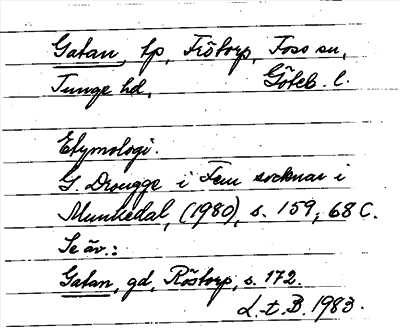 Gatan, tp, Frötorp, Foss sn,
Tunge hd, Göteb. l.
Etymologi.
G. Drougge i Fem socknar i
Munkedal, (1980), s. 159, 68 C.
Se äv.:
Gatan, gd, Röstorp, s. 172.
L-t. B. 1983.